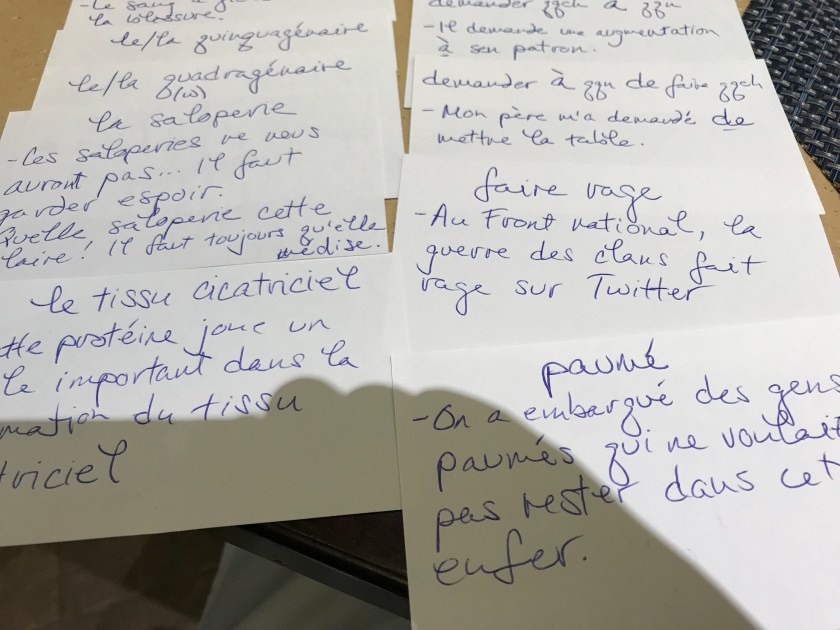 -Le sang a
la blessure.
le/la quinquagénaire
le/la quadragénaire
la saloperie
-Ces saloperies ne nous
auront pas... Il faut
garder espoir.
Quelle saloperie cette
Claire! Il faut toujours qu'elle
médise.
le tissu cicatriciel
protéine joue un
important dans la
du tissu
demander qqch à qqn
-Il demande une augmentation
à son patron.
demander à qqn de faire qqch
-Mon père m'a demandé de
mettre la table.
faire rage
-Au Front national, la
guerre des clans fait
rage sur Twitter
paumé
-On a embarqué des gens
paumés qui ne voulait
pas rester dans cet
enfer.